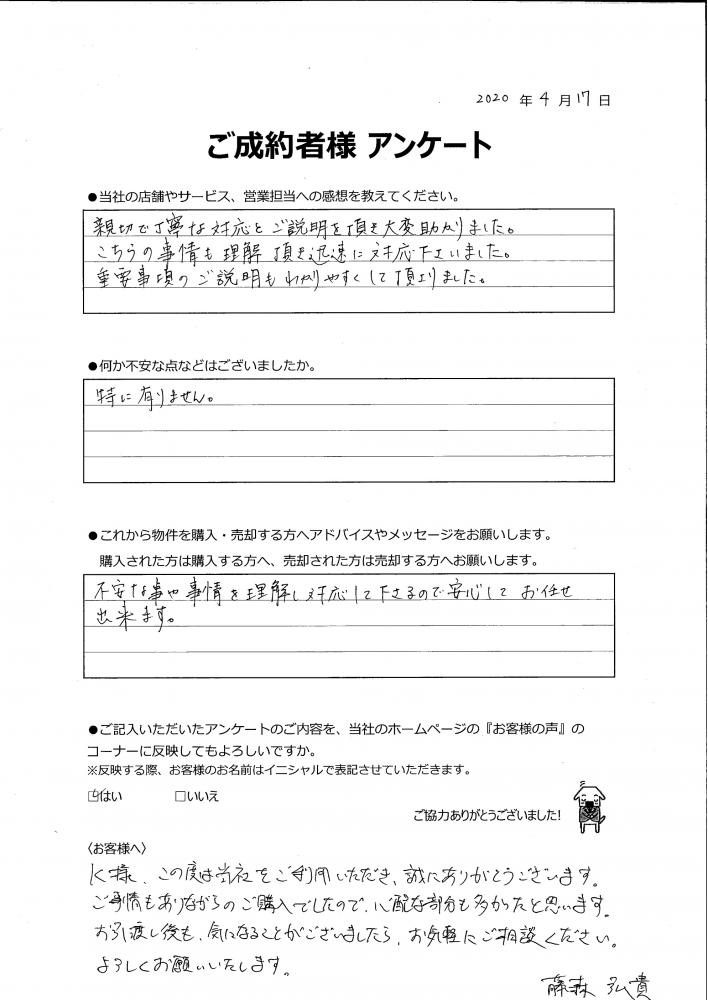 2020 年 4 月 17 日
ご成約者様 アンケート
●当社の店舗やサービス、営業担当への感想を教えてください。
親切で丁寧な対応とご説明を頂き大変助かりました。
こちらの事情も理解頂き迅速に対応下さいました。
重要事項のご説明もわかりやすくして頂けました。
●何か不安な点などはございましたか。
特に有りません。
●これから物件を購入・売却する方へアドバイスやメッセージをお願いします。
購入された方は購入する方へ、売却された方は売却する方へお願いします。
不安な事や事情を理解し対応して下さるので安心してお任せ
出来ます。
●ご記入いただいたアンケートのご内容を、当社のホームページの『お客様の声』の
コーナーに反映してもよろしいですか。
※反映する際、お客様のお名前はイニシャルで表記させていただきます。
☑はい □いいえ
ご協力ありがとうございました!
〈お客様へ〉
K様、この度は当社をご利用いただき、誠にありがとうございます。
ご事情もありながらのご購入でしたので、心配な部分も多かったと思います。
お引渡し後も、気になることがございましたら、お気軽にご相談ください。
よろしくお願いいたします。
藤森 弘貴